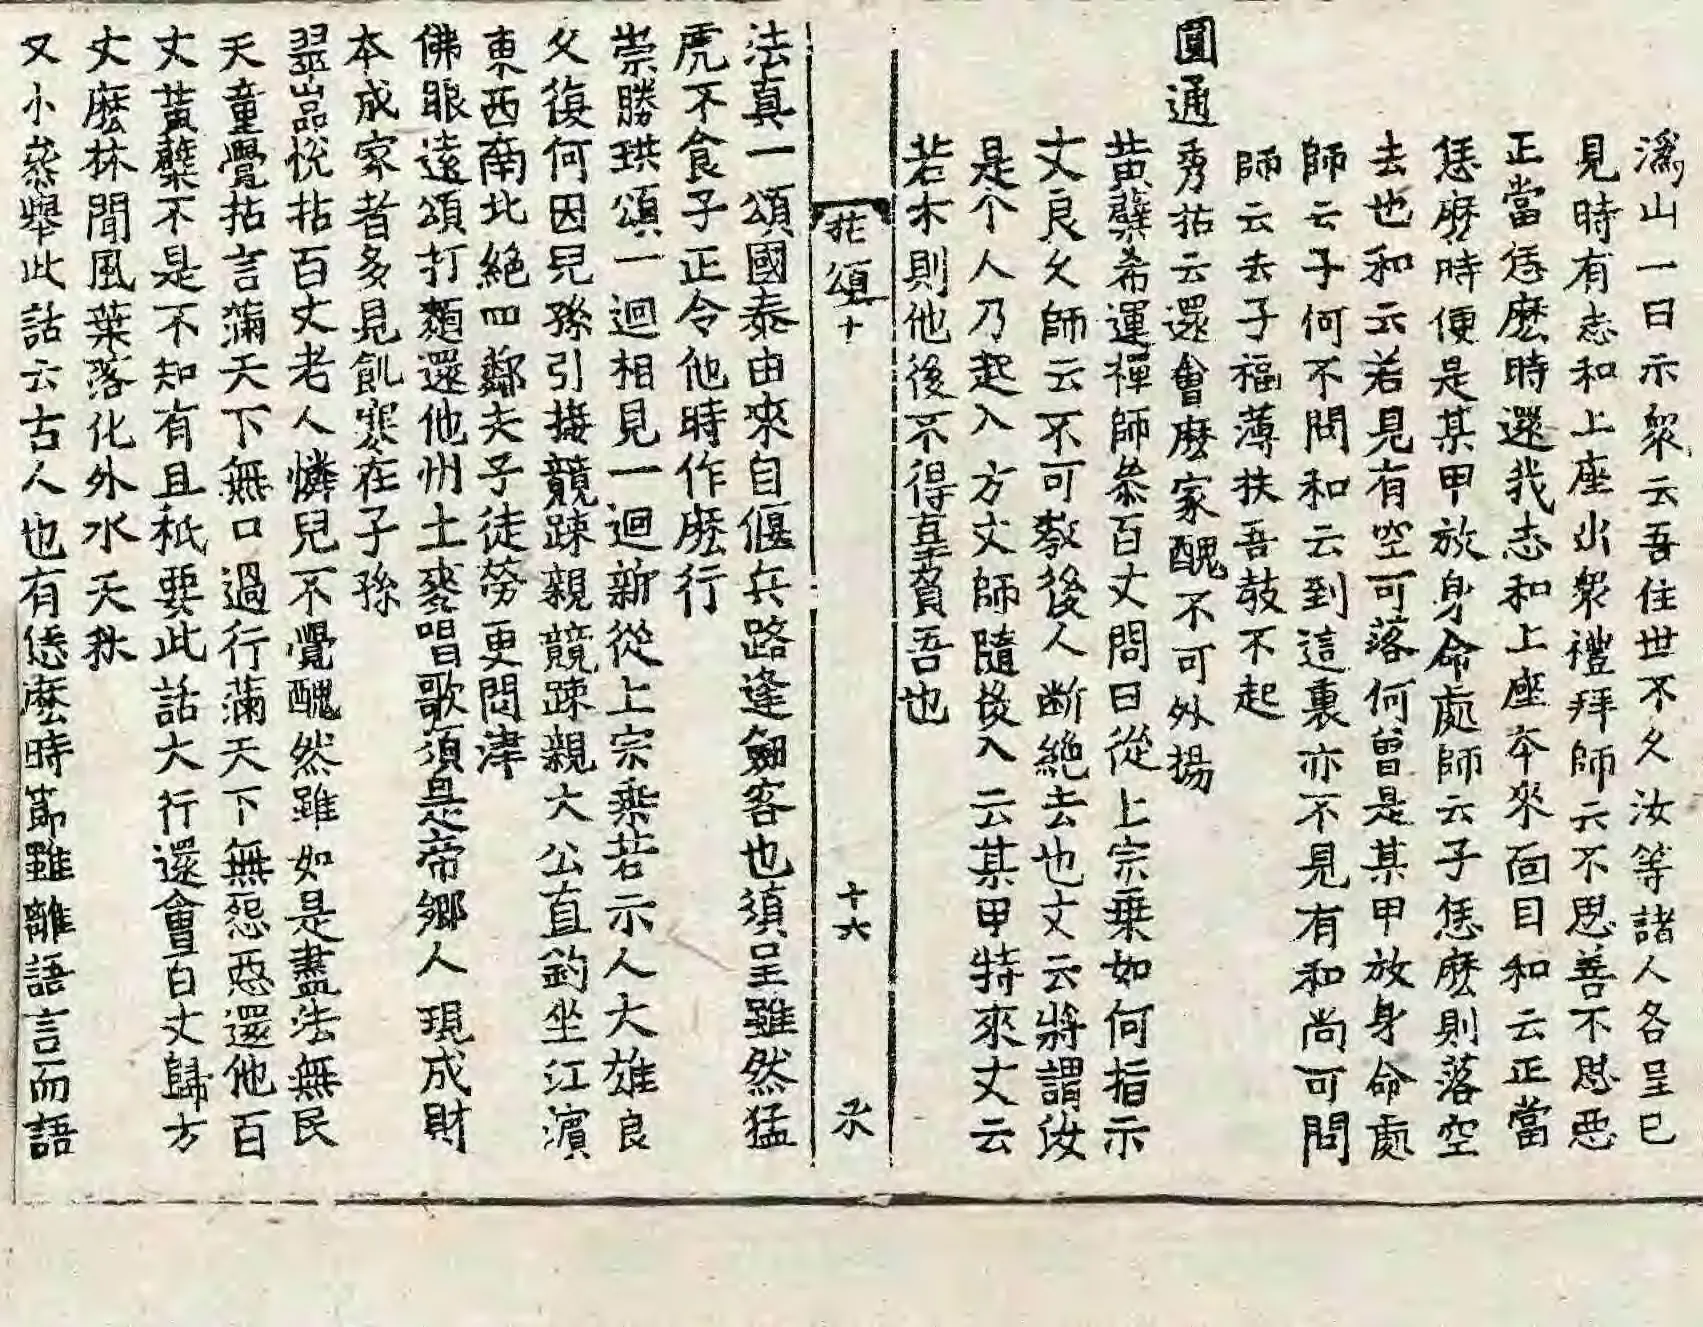 潙山一日示衆云吾住世不久汝等諸人各呈已
見時有志和上座出衆禮拜師云不思善不思惡
正當恁麽時還我志和上座本來面目和云正當
恁麽時便是某甲放身命處師云子恁麽則落空
去也和云若見有空可落何曾是某甲放身命處
師云子何不問和云到這裏亦不見有和尚可問
師云去子福薄扶吾敎不起
圓通秀拈云還會麽家醜不可外揚
黃蘗希運禪師叅百丈問曰從上宗乗如何指示
丈良久師云不可敎後人断絶去也丈云將謂汝
是个人乃起入方丈師隨後入云某甲特來丈云
若木則他後不得辜負吾也
拈頌十 十六 氶
法真一頌國泰由來自偃兵路逢劒客也須呈雖然猛
虎不食子正令他時作麽行
崇勝珙頌一迴相見一迴新從上宗乘若示人大雄良
久復何因兒孫引接競踈親競踈親大公直釣坐江濱
東西南北絶四鄰夫子徒勞更問津
佛眼遠頌打麵還他州土麥唱歌須是帝鄉人現成財
本成家者多見飢寒在子孫
翠嵓悅拈百丈老人憐兒不覺醜然雖如是盡法無民
天童覺拈言滿天下無口過行滿天下無怨惡還他百
丈黃蘗不是不知有且秖要此話大行還會百丈歸方
丈麽林閒風葉落化外水天秋
又小叅舉此話云古人也有恁麽時節雖離語言而語